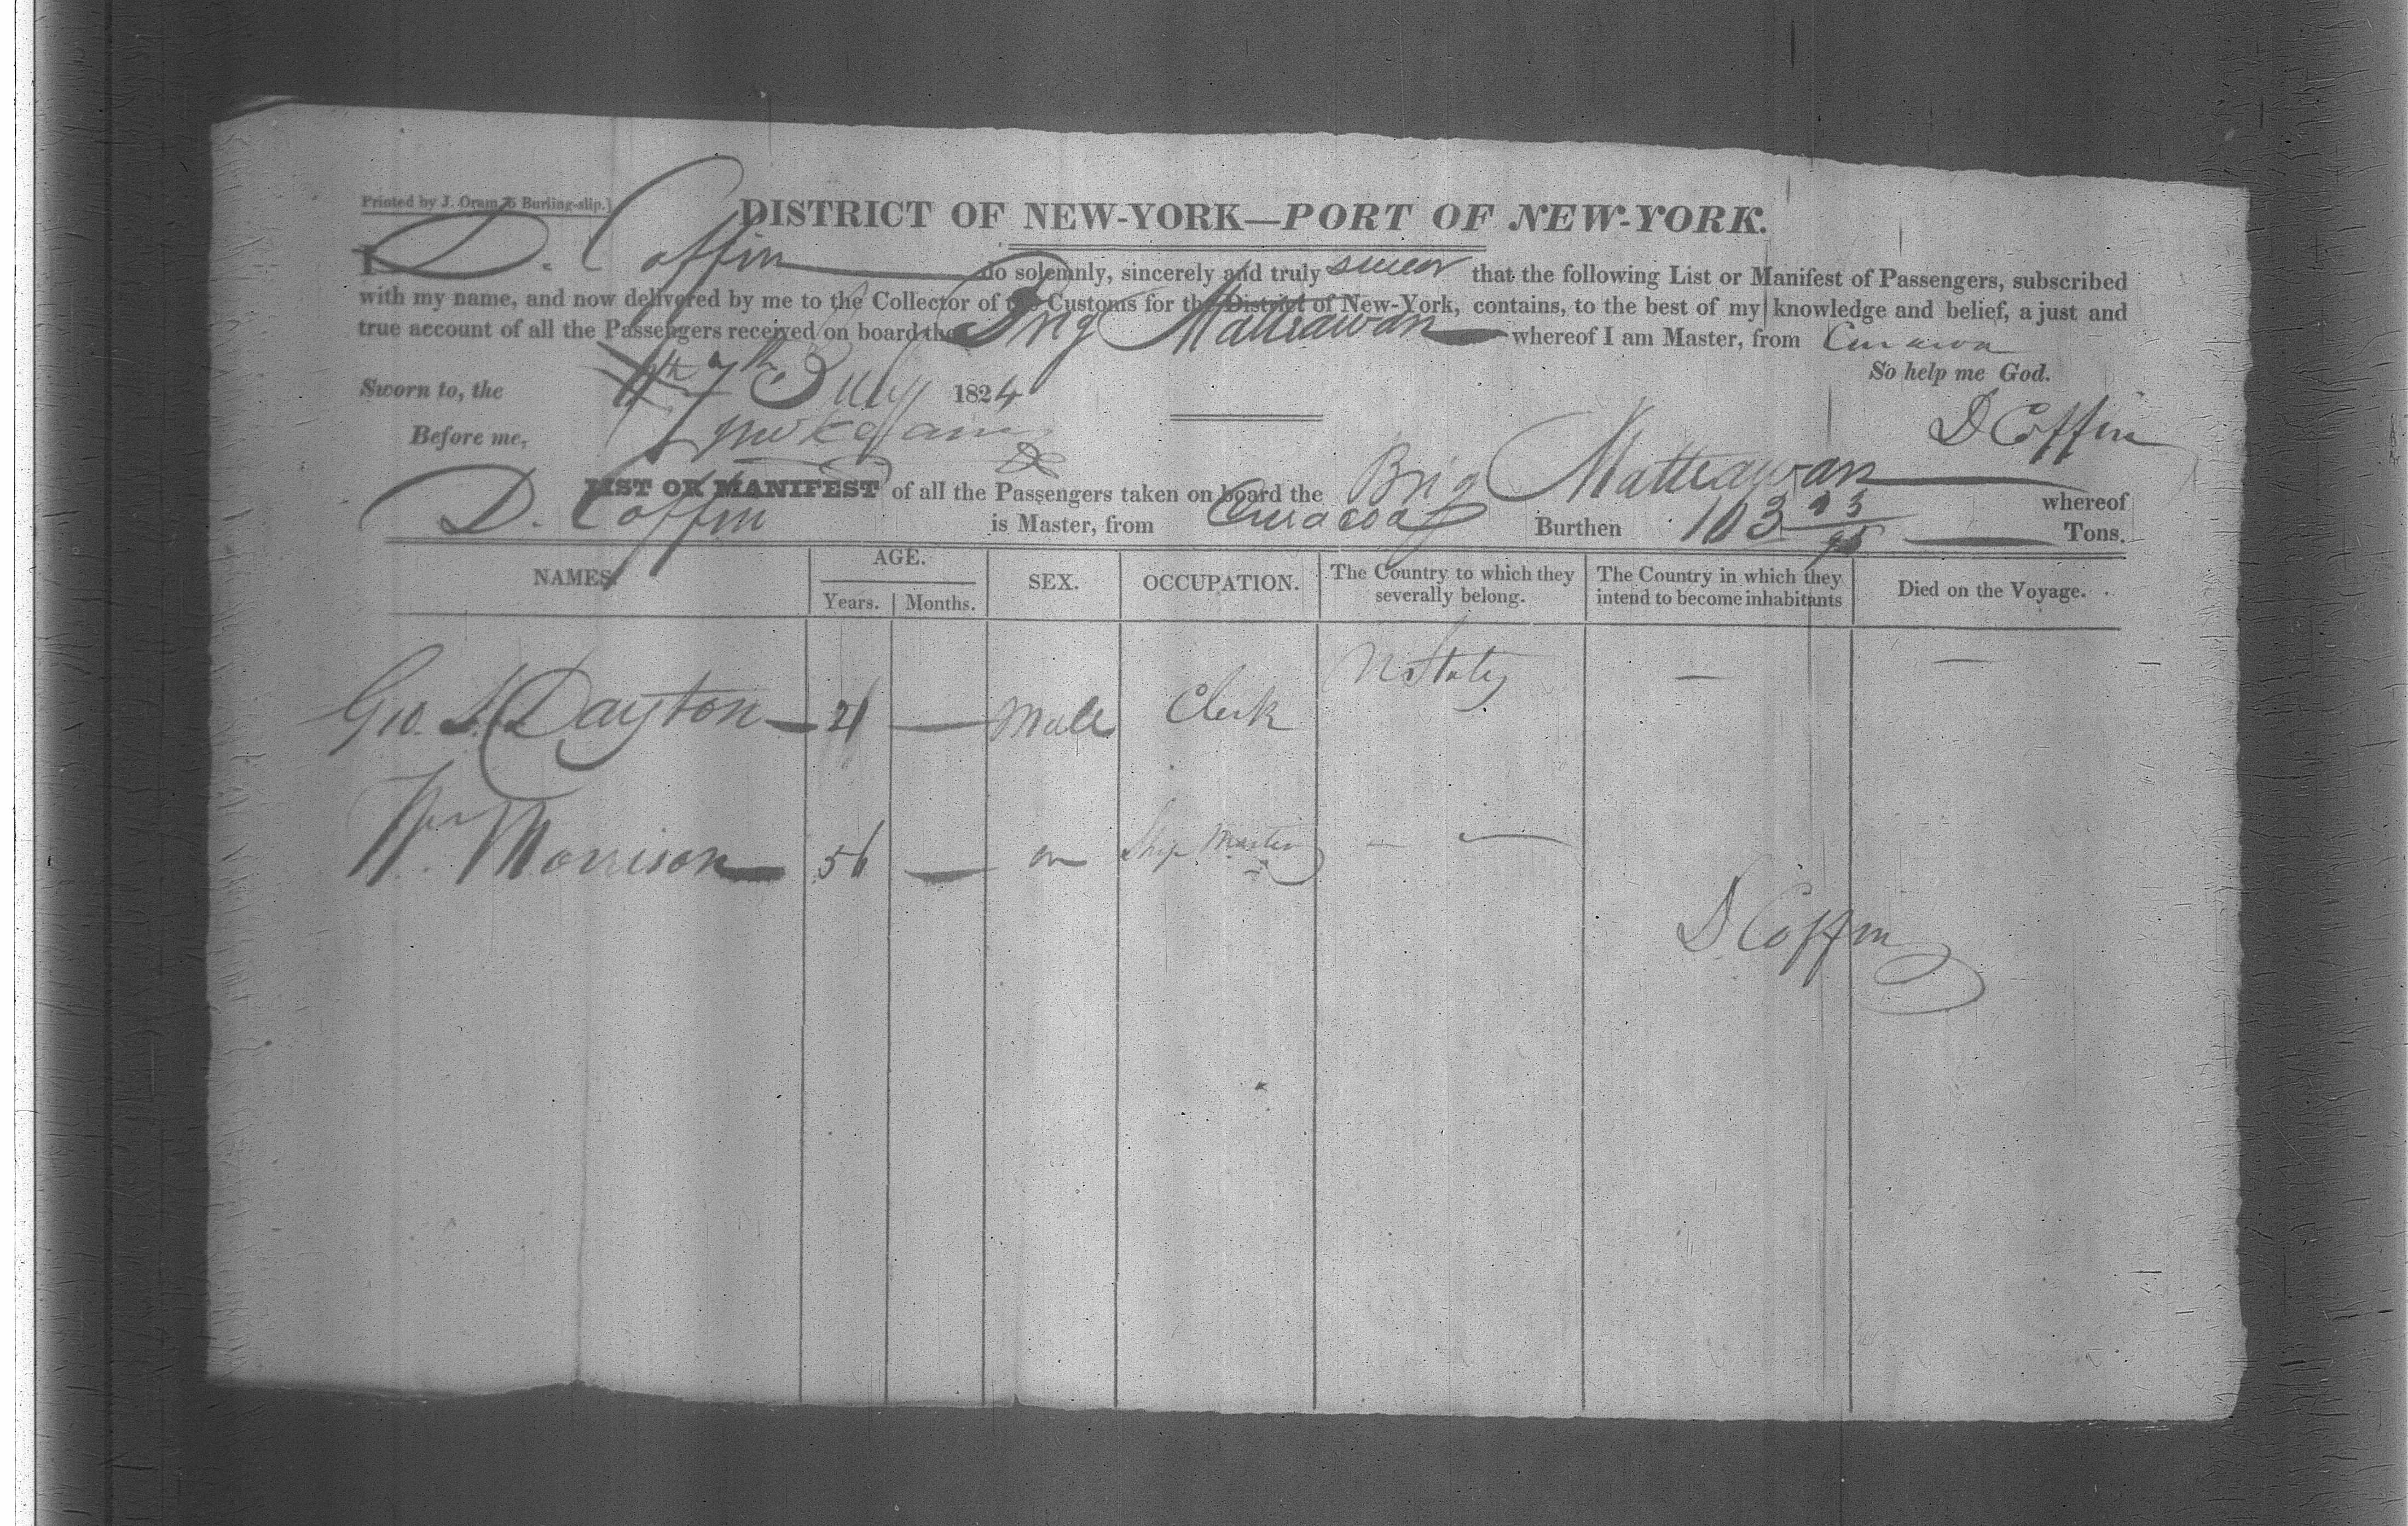 Printed by J. Oram 5 Burling-slip.]
DISTRICT OF NEW-YORK—PORT OF NEW-YORK.
I D. Coffin do solemnly, sincerely and truly swear that the following List or Manifest of Passengers, subscribed
with my name, and now delivered by me to the Collector of the Customs for the District of New-York, contains, to the best of my knowledge and belief, a just and
true account of all the Passengers received on board the Brig Matteawan whereof I am Master, from Curacoa
So help me God.
Sworn to, the 7th July 1824
D Coffin
Before me,
LIST OR MANIFEST of all the Passengers taken on board the Brig Matteawan whereof
D. Coffin is Master, from Curacoa Burthen 103 23/95 Tons.
NAMES. AGE. SEX. OCCUPATION. The Country to which they severally belong. The Country in which they intend to become inhabitants Died on the Voyage.
Years. Months.
Geo. L. Dayton — 21 — Male Clerk U States — —
Wm Morrison — 56 — Ship Master — —
D Coffin